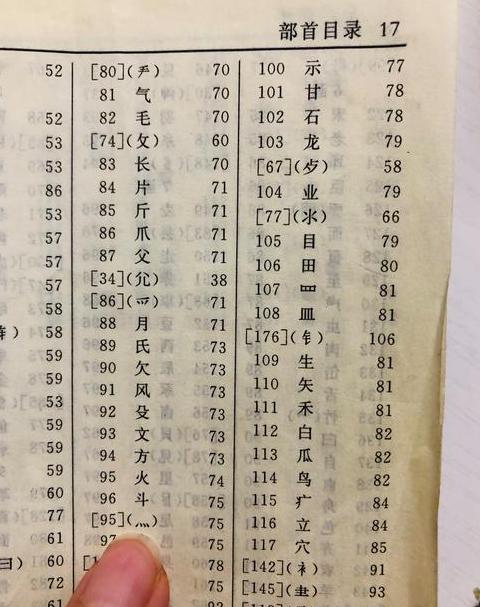 部首目录 17
52
52
53
53
86
53
57
57
57
58
) 58
59
59
53
59
59
59
60
77
61
曰) 60
72
61
[80](龵) 70
81 气 70
82 毛 70
[74](攵) 60
83 长 70
84 片 71
85 斤 71
86 爪 71
87 父 71
[34](尣) 38
[86](爫) 71
88 月 71
89 氏 73
90 欠 73
91 风 73
92 殳 73
93 文 73
94 方 73
95 火 74
96 斗 75
[95](灬) 75
97 75
[1 78
75
92
100 示 77
101 甘 78
102 石 78
103 龙 79
[67](歺) 58
104 业 79
[77](氺) 66
105 目 79
106 田 80
107 罒 81
108 皿 81
[176](钅) 106
109 生 81
110 矢 81
111 禾 81
112 白 82
113 瓜 82
114 鸟 82
115 疒 84
116 立 84
117 穴 85
[142](衤) 91
[145](𡗗) 93